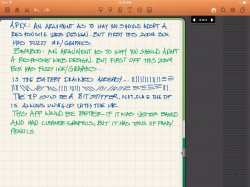 APEX: AN ARGUMENT AS TO WHY WE SHOULD ADOPT A
RESPONSIVE WEB DESIGN. BUT FIRST THIS ZOOM BOX
HAS FUZZY INK/GRAPHICS
BAMBOO: AN ARGUMENT AS TO WHY YOU SHOULD ADOPT
A RESPONSIVE WEB DESIGN. BUT FIRST OFF THIS ZOOM
BOX HAS FUZZY INK/GRAPHICS...
IS THE BATTERY DRAINED ALREADY...
THE TIP COULD BE A BIT SOFTER. NOT SURE THE TIP
IS ALWAYS
THIS APP WOULD BE BETTER IF IT WAS VECTOR BASED
AND HAD CLEANER GRAPHICS, BUT IT HAS TONS OF PENS/
PENCILS